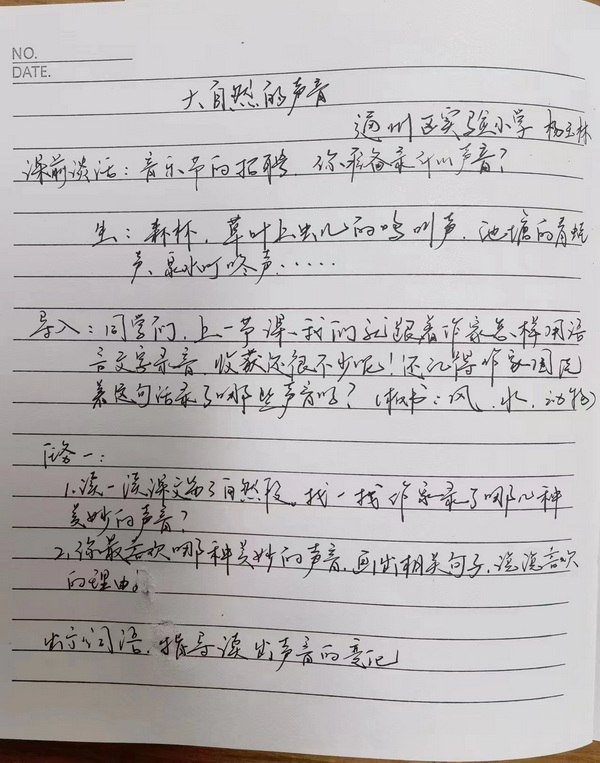 NO.
DATE.
大自然的声音
通州区实验小学 杨玉林
课前谈话：音乐节的招聘，你准备录什么声音？
生：森林，草叶上虫儿的鸣叫声，池塘的青蛙
声、泉水叮咚声……
导入：同学们，上一节课，我们就跟着作家怎样用语
言文字录音，收获还很不少呢！还记得作家围绕
着这句话录了哪些声音吗？（板书：风、水、动物）
任务一：
1.读一读课文第3自然段，找一找作家录了哪几种
美妙的声音？
2.你最喜欢哪种美妙的声音，画出相关句子，说说喜欢
的理由。
出示词语，指导读出声音的变化